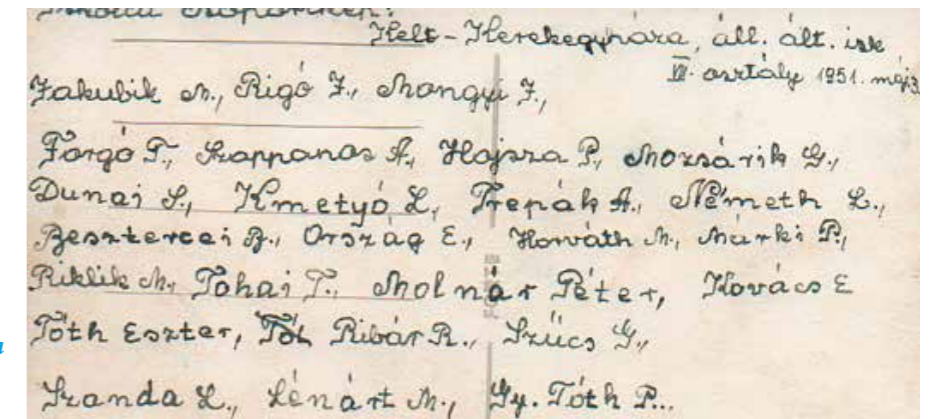 Kelt - Kerekegyháza, áll. ált. isk
VII. osztály 1951. máj 3.
Jakubik M., Rigó J., Mongyi J.,
Forgó T., Szappanos A., Hajsza P., Mozsárik G.,
Dunai S., Kmetyó L., Trepák A., Németh L.,
Besztercei B., Ország E., Horváth M., Márki P.,
Riklik M., Tohai T., Molnár Péter, Kovács E
Tóth Eszter, Tót Ribár R., Szűcs G.,
Szanda L., Lénárt M., Gy. Tóth P...